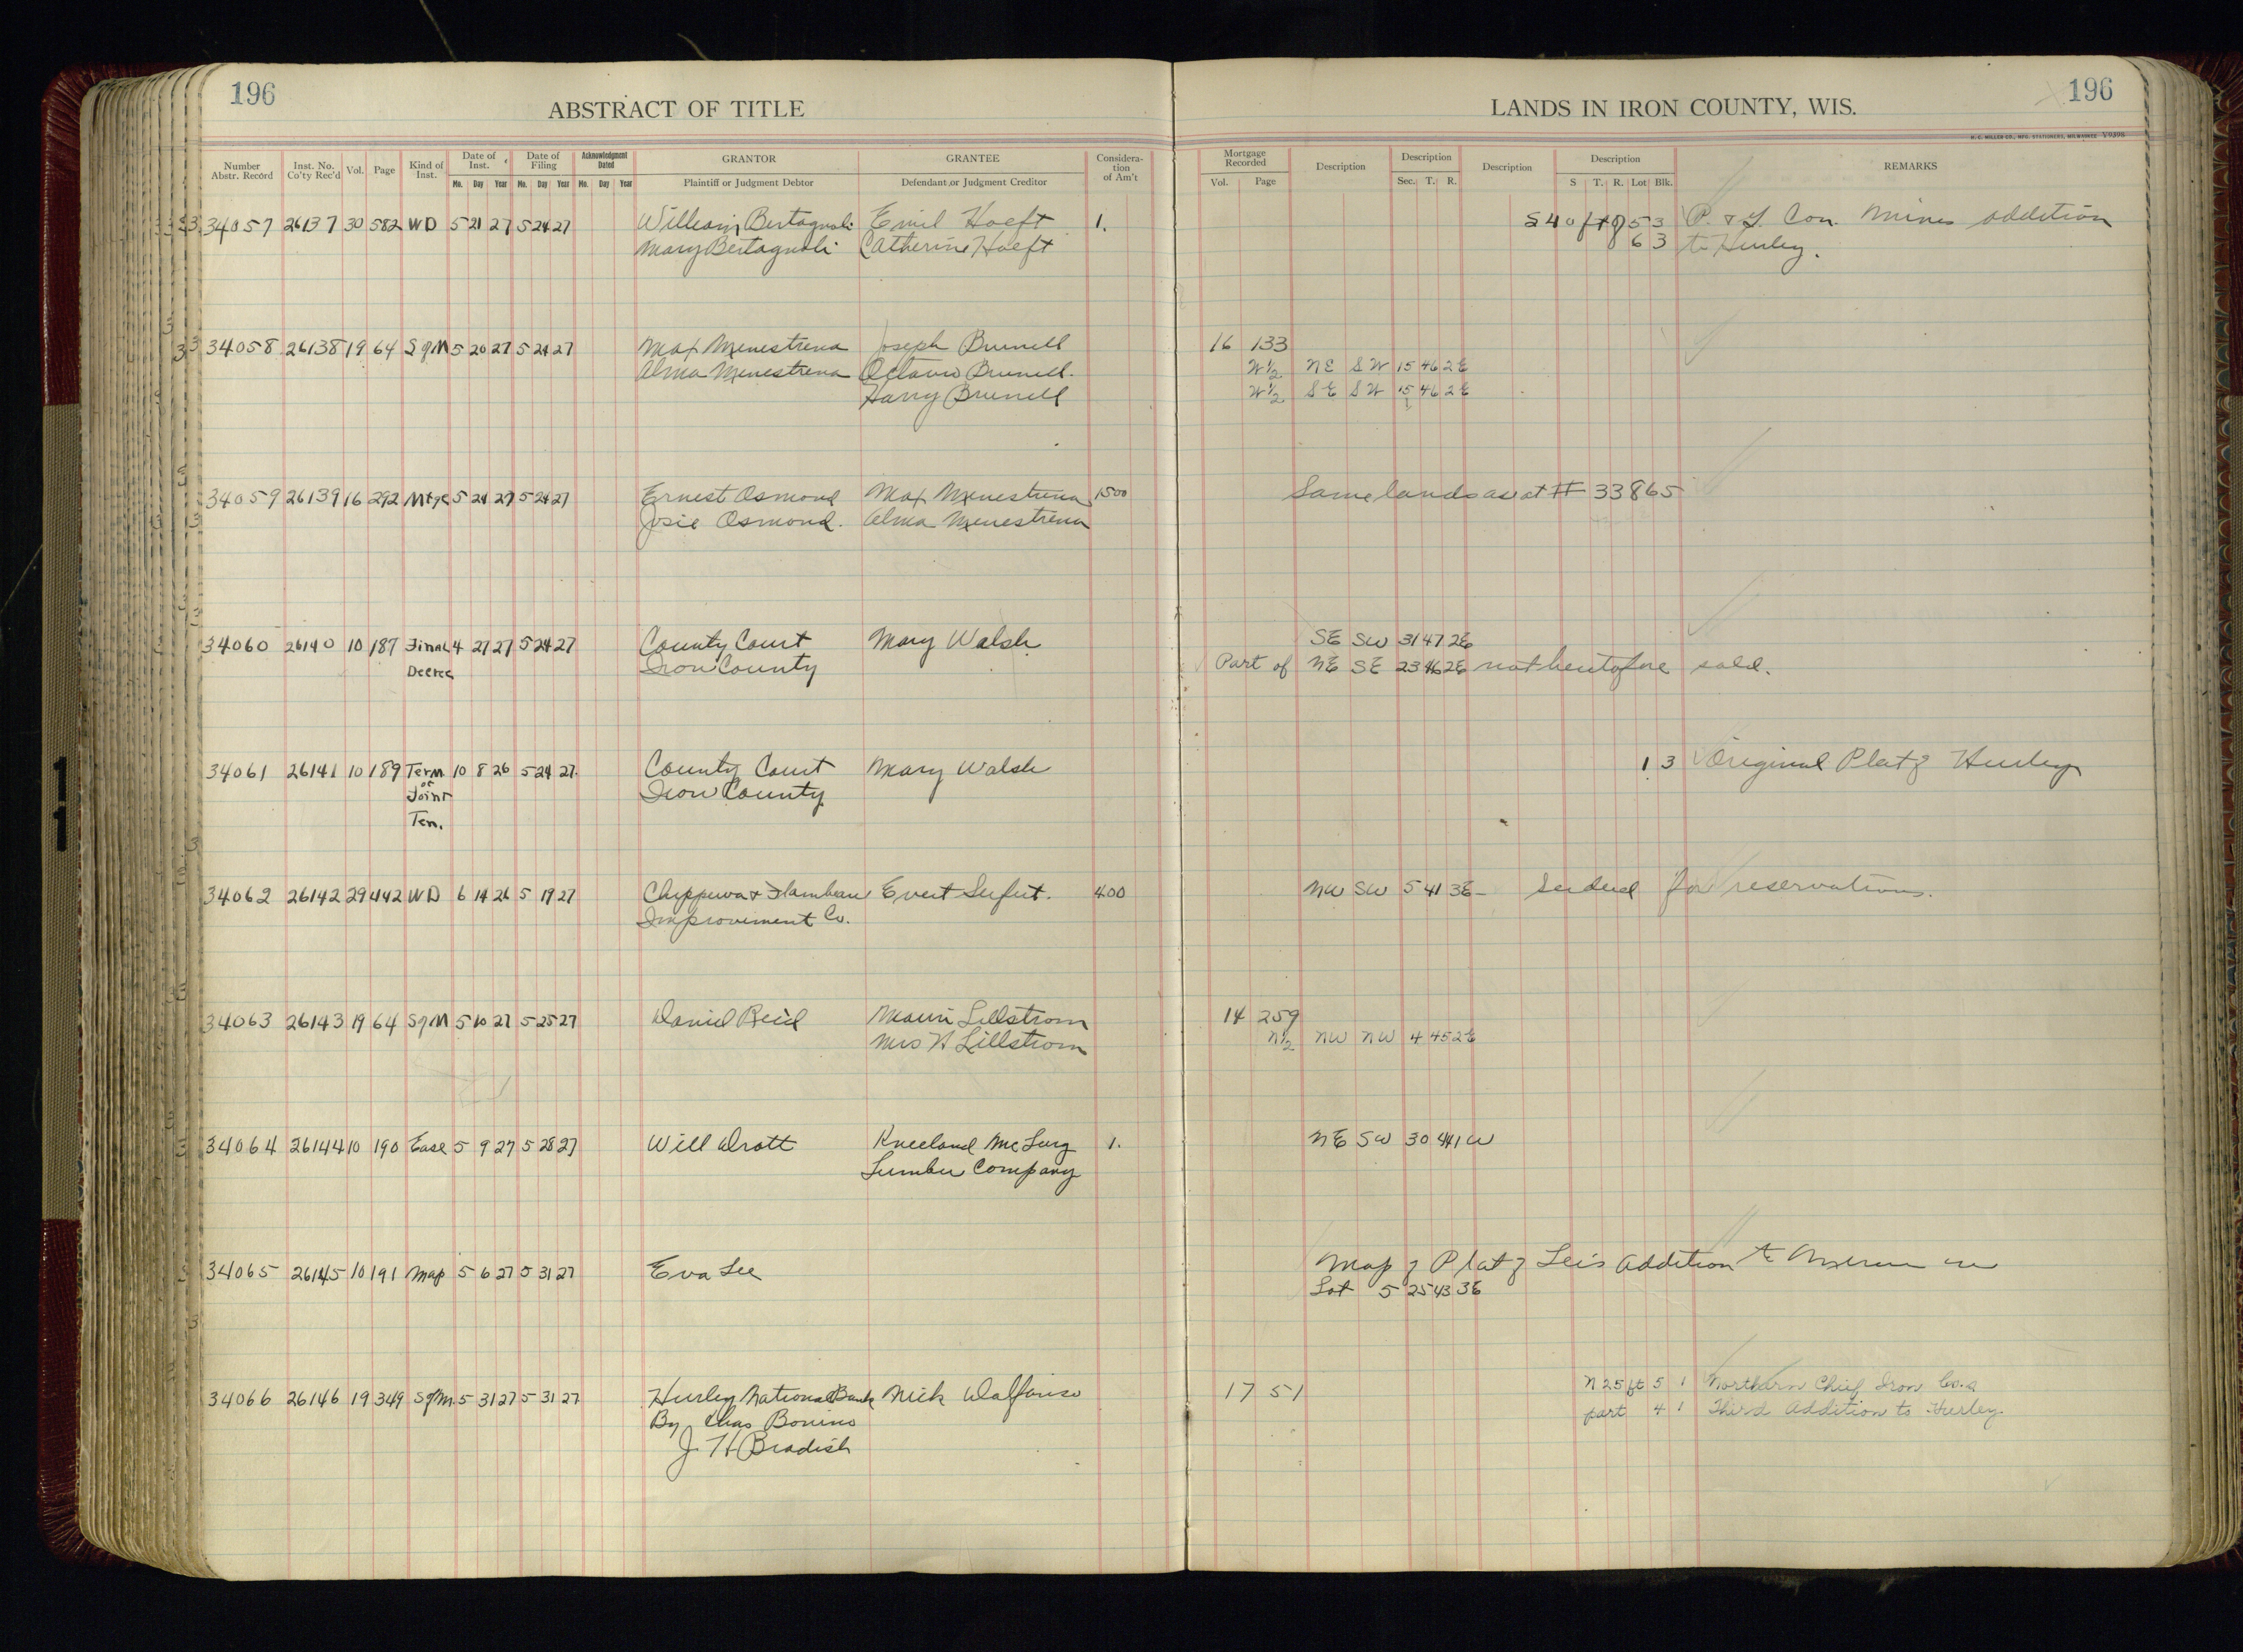 196
ABSTRACT OF TITLE
LANDS IN IRON COUNTY, WIS.
196
H. C. MILLER CO., MFG. STATIONERS, MILWAUKEE V9398
Number Abstr. Record
Inst. No. Co'ty Rec'd
Vol.
Page
Kind of Inst.
Date of Inst.
Mo. Day Year
Date of Filing
Mo. Day Year
Acknowledgment Dated
Mo. Day Year
GRANTOR
Plaintiff or Judgment Debtor
GRANTEE
Defendant or Judgment Creditor
Considera-tion of Am't
Mortgage Recorded
Vol. Page
Description
Description
Sec. T. R.
Description
Description
S T. R. Lot Blk.
REMARKS
34057 26137 30 582 WD 5 21 27 5 24 27 William Bertagnoli Emil Hoeft 1. S 40 ft of 5 3 P. & L. Con. Mines addition
Mary Bertagnoli Catherine Hoeft 6 3 to Hurley.
34058 26138 19 64 S of M 5 20 27 5 24 27 Max Menestrena Joseph Brunell 16 133
Alma Menestrena Octavie Brunell. W 1/2 NE SW 15 46 2E
Harry Brunell W 1/2 SE SW 15 46 2E
34059 26139 16 292 Mtge 5 24 27 5 24 27 Ernest Osmond Max Menestrena 1500 Same lands as at # 33865
Josie Osmond. Alma Menestrena
34060 26140 10 187 Final 4 27 27 5 24 27 County Court Mary Walsh SE SW 31 47 2E
Decree Iron County Part of NE SE 23 46 2E not heretofore sold.
34061 26141 10 189 Term 10 8 26 5 24 27 County Court Mary Walsh 1 3 Original Plat of Hurley
of Iron County
Joint
Ten.
34062 26142 29 442 WD 6 14 26 5 19 27 Chippewa & Flambeau Evert Seifert. 400 NW SW 5 41 3E – See deed for reservations.
Improvement Co.
34063 26143 19 64 S of M 5 10 27 5 25 27 Daniel Reid Lillstrom 14 259
Mrs H Lillstrom N 1/2 NW NW 4 45 2E
34064 26144 10 190 Ease 5 9 27 5 28 27 Will Drott Kneeland McLurg 1. NE SW 30 44 1W
Lumber Company
34065 26145 10 191 Map 5 6 27 5 31 27 Eva Lee Map of Plat of Lee's addition to Mercer in
Lot 5 25 43 3E
34066 26146 19 349 S of M. 5 31 27 5 31 27 Hurley National Bank Nick Dalfonso 17 51 N 25 ft 5 1 Northern Chief Iron Co.s
By Chas Bonino part 4 1 Third Addition to Hurley.
J. H Bradish